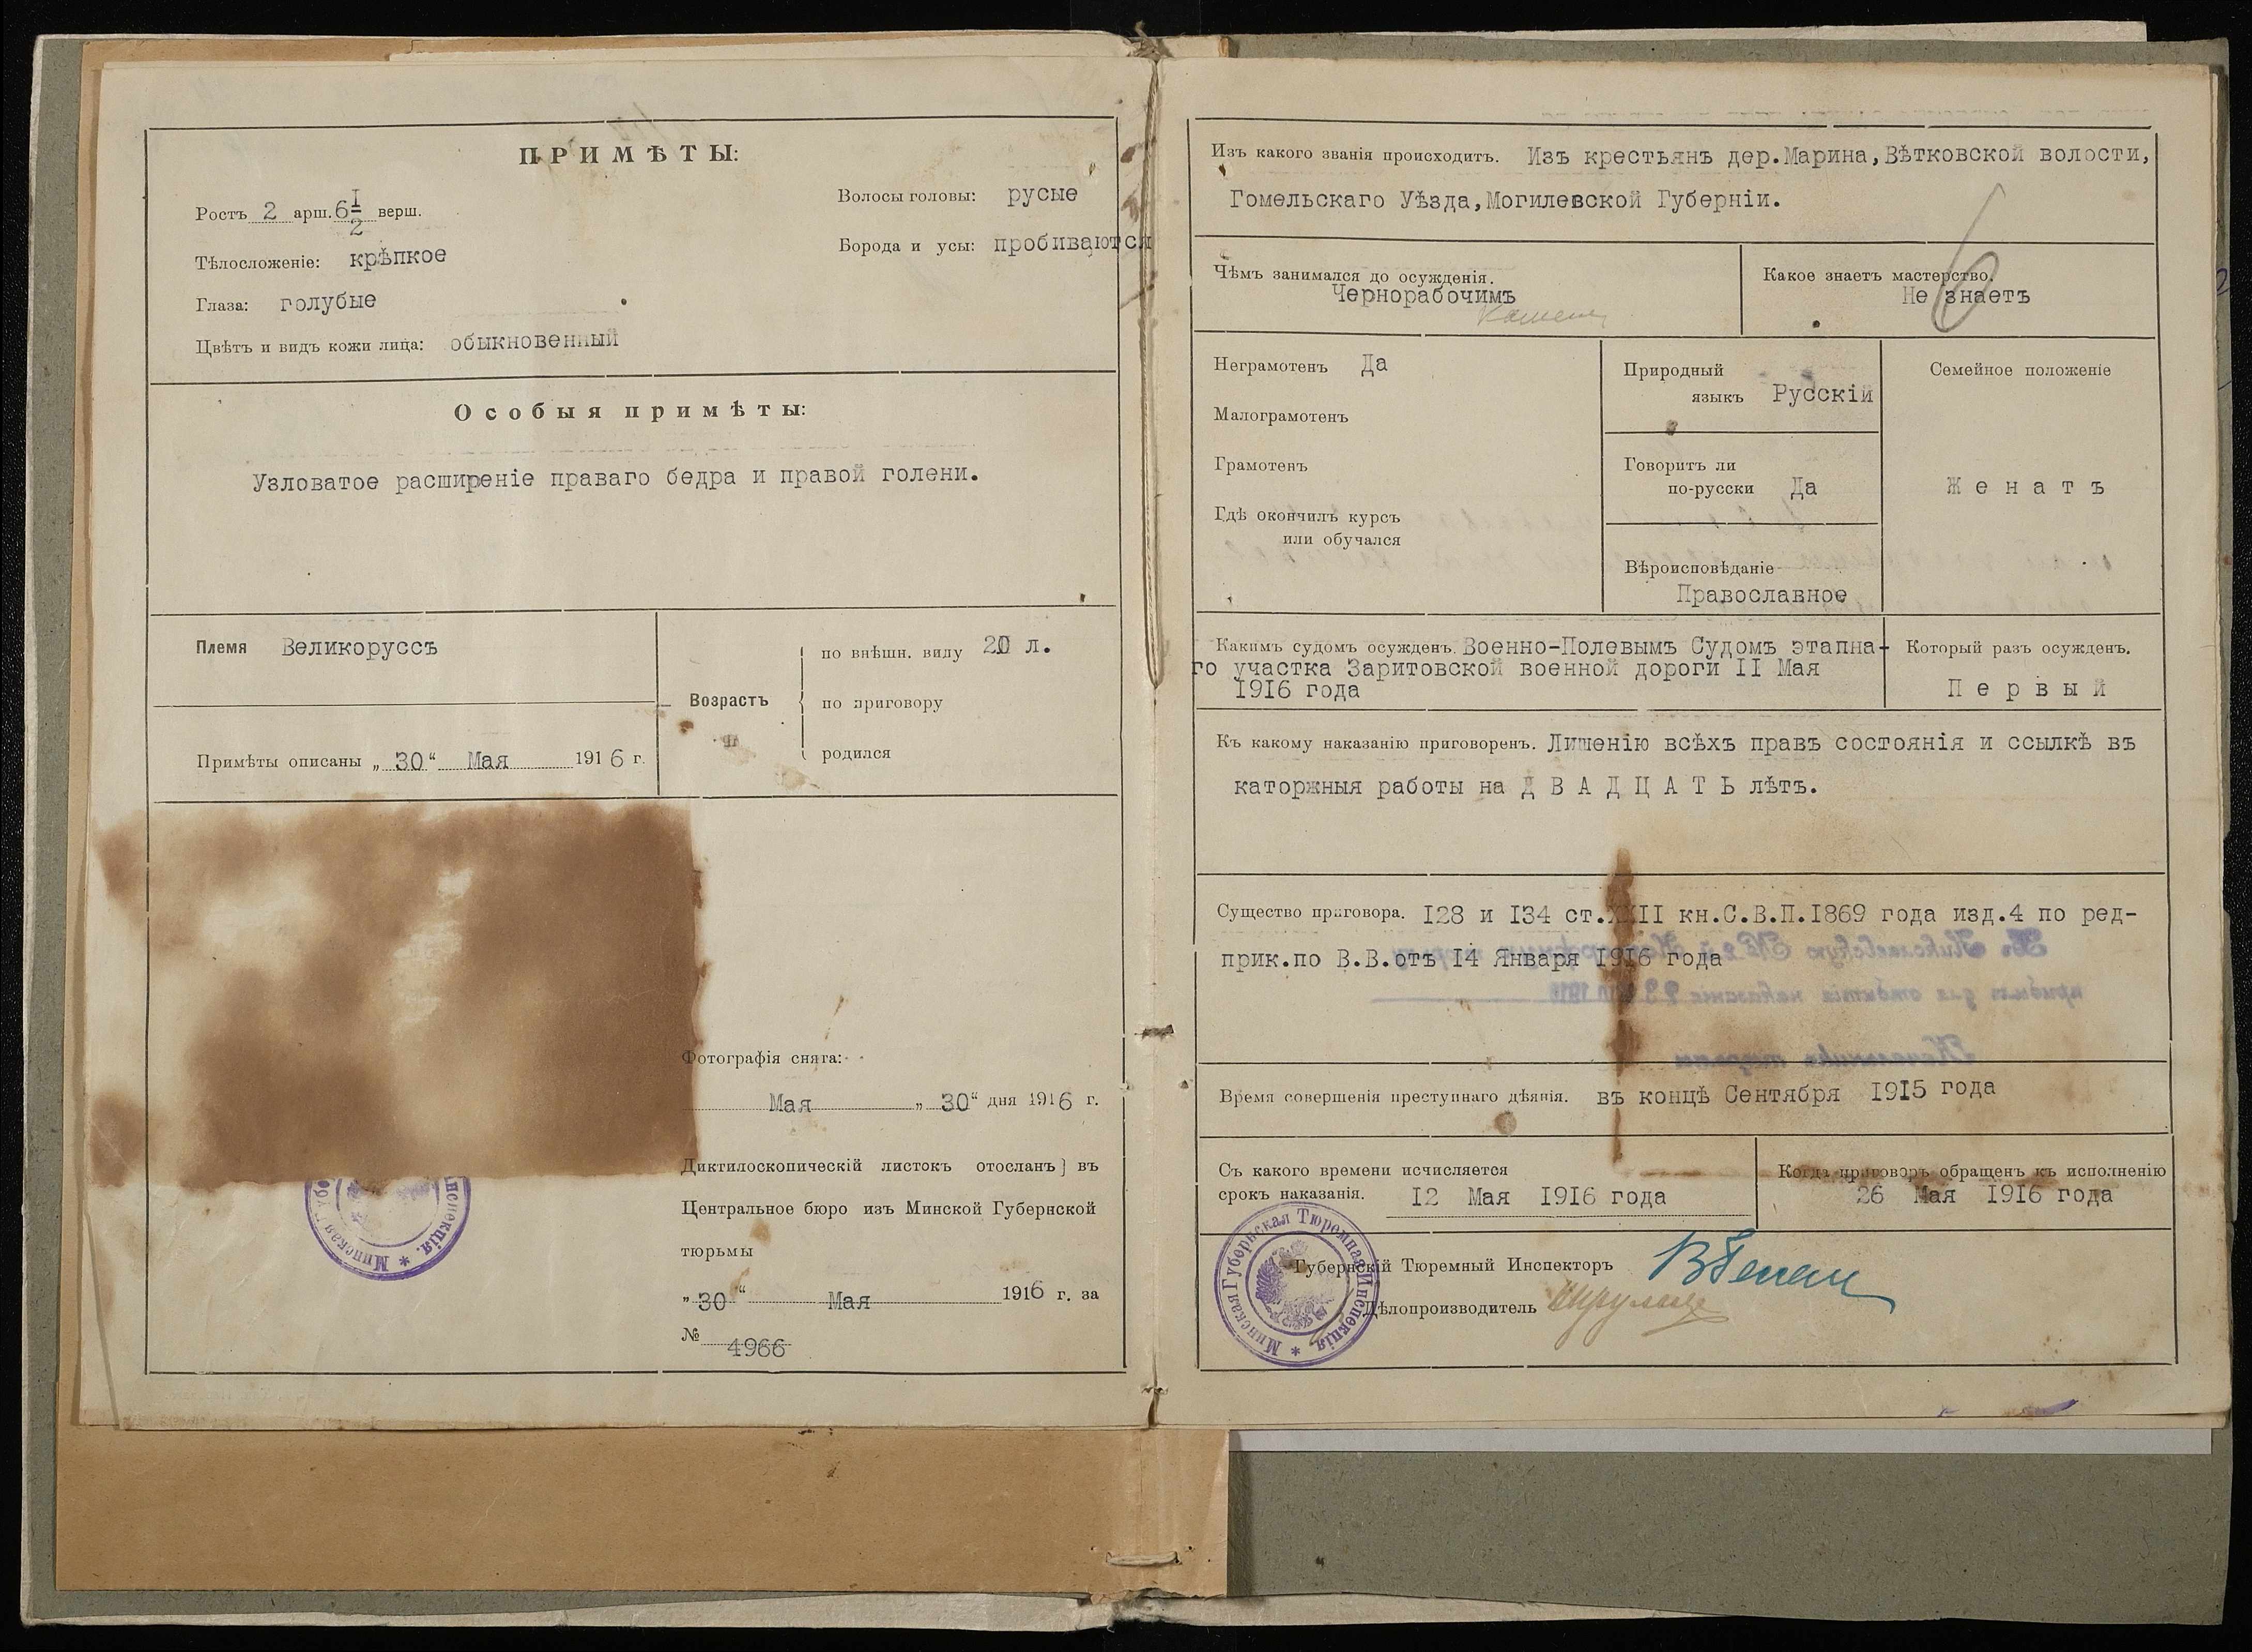 ПРИМѢТЫ:
Ростъ 2 арш. 6 1/2 верш.
Волосы головы: русые
Тѣлосложеніе: крѣпкое
Борода и усы: пробиваются
Глаза: голубые
Цвѣтъ и видъ кожи лица: обыкновенный
Особыя примѣты:
Узловатое расширеніе праваго бедра и правой голени.
Племя Великоруссъ
Возрастъ
по внѣшн. виду 20 л.
по приговору
родился
Примѣты описаны „ 30 “ Мая 1916 г.
Фотографія снята:
Мая „ 30 “ дня 1916 г.
Диктилоскопическій листокъ отосланъ] въ
Центральное бюро изъ Минской Губернской
тюрьмы
„ 30 “ Мая 1916 г. за
№ 4966
Изъ какого званія происходитъ. Изъ крестьянъ дер.Марина,Вѣтковской волости,
Гомельскаго Уѣзда,Могилевской Губерніи.
Чѣмъ занимался до осужденія.
Чернорабочимъ
Какое знаетъ мастерство.
Не знаетъ
Неграмотенъ Да
Малограмотенъ
Грамотенъ
Гдѣ окончилъ курсъ
или обучался
Природный
языкъ Русскій
Говоритъ ли
по-русски Да
Вѣроисповѣданіе
Православное
Семейное положеніе
Женатъ
Какимъ судомъ осужденъ. Военно-Полевымъ Судомъ этапна-
го участка Заритовской военной дороги II Мая
1916 года
Который разъ осужденъ.
Первый
Къ какому наказанію приговоренъ. Лишенію всѣхъ правъ состоянія и ссылкѣ въ
каторжныя работы на ДВАДЦАТЬ лѣтъ.
Существо приговора. I28 и I34 ст.XXII кн.С.В.П.I869 года изд.4 по ред-
прик.по В.В.отъ I4 Января I9I6 года
Время совершенія преступнаго дѣянія. въ концѣ Сентября I9I5 года
Съ какого времени исчисляется
срокъ наказанія. I2 Мая I9I6 года
Когда приговоръ обращенъ къ исполненію
26 Мая I9I6 года
Губернскій Тюремный Инспекторъ
Дѣлопроизводитель
Минская Губернская Тюремная Инспекція. *